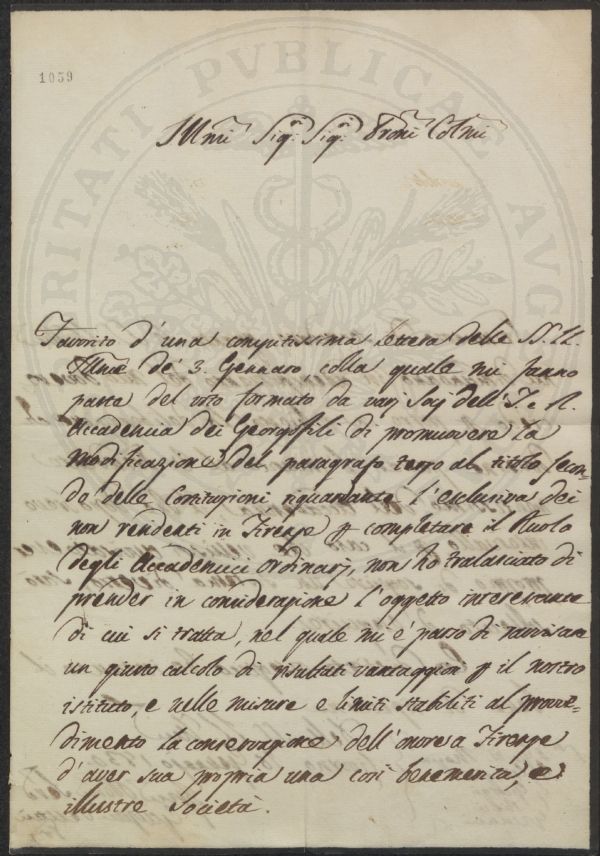 1059
Illmi Sigri Sigri Proni Colmi
Favorito d'una compitissima lettera delle SS. LL.
Illme de' 3. Gennaro, colla quale mi fanno
parte del voto formato da varj Socj dell'I. e R.
Accademia dei Georgofili di promuovere la
modificazione del paragrafo terzo al titolo secon-
do delle Costituzioni riguardante l'esclusiva dei
non rendenti in Firenze p completare il Ruolo
degli Accademici ordinarj, non ho tralasciato di
prender in considerazione l'oggetto interessante
di cui si tratta, nel quale mi è parso di ravvisare
un giusto calcolo di risultati vantaggiosi p il nostro
istituto, e nelle misure e limiti stabiliti al provve-
dimento la conservazione dell'onore a Firenze
d'aver sua propria una così benemerita, e
illustre Società.
PUBLICAE
AUG